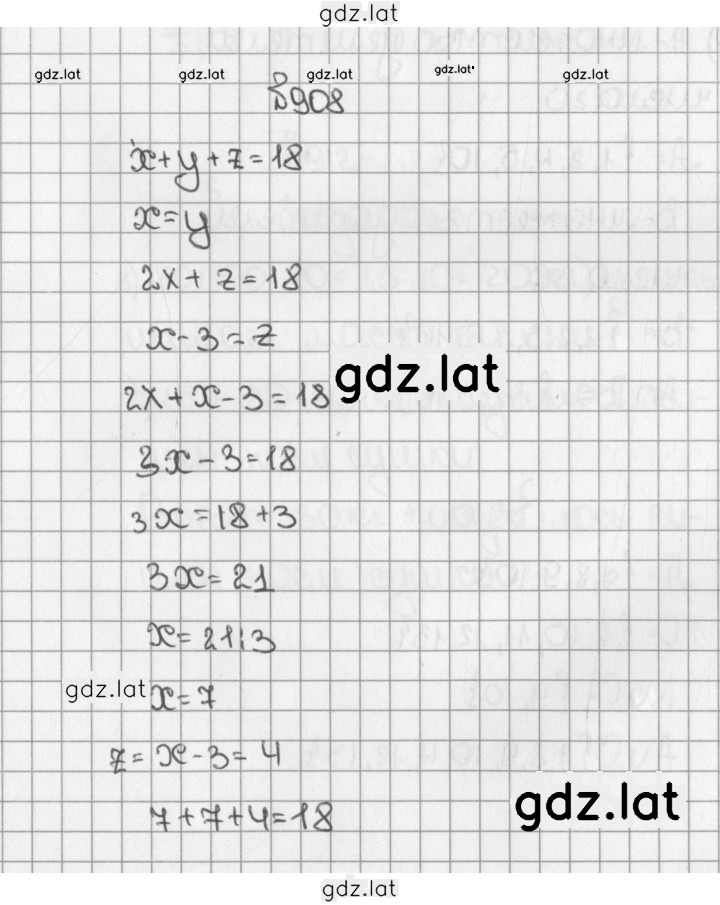 gdz.lat
gdz.lat gdz.lat gdz.lat gdz.lat gdz.lat
№908
x+y+z=18
x=y
2x+z=18
x-3=z
gdz.lat
2x+x-3=18
3x-3=18
3x=18+3
3x=21
x=21:3
gdz.lat
x=7
z=x-3=4
gdz.lat
7+7+4=18
gdz.lat